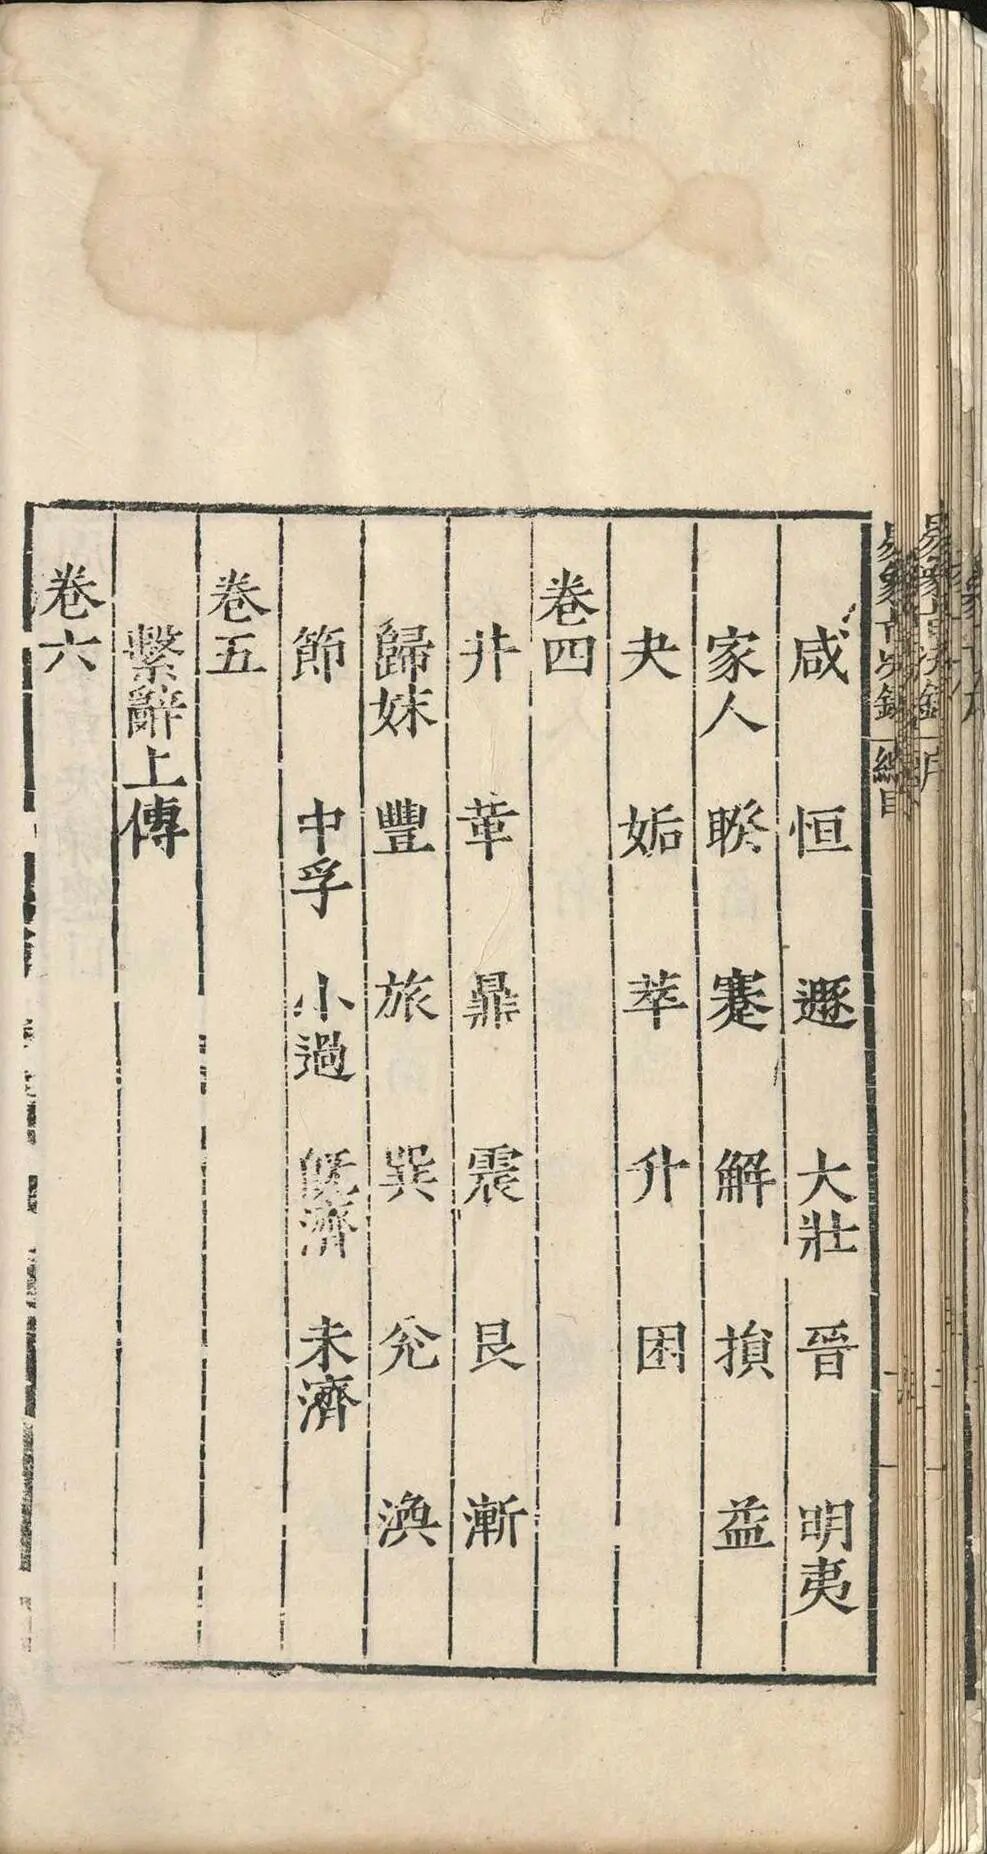 咸 恒 遯 大壯 晉 明夷
家人 睽 蹇 解 損 益
夬 姤 萃 升 困
卷四
井 革 鼎 震 艮 漸
歸妹 豐 旅 巽 兊 渙
節 中孚 小過 旣濟 未濟
卷五
繫辭上傳
卷六